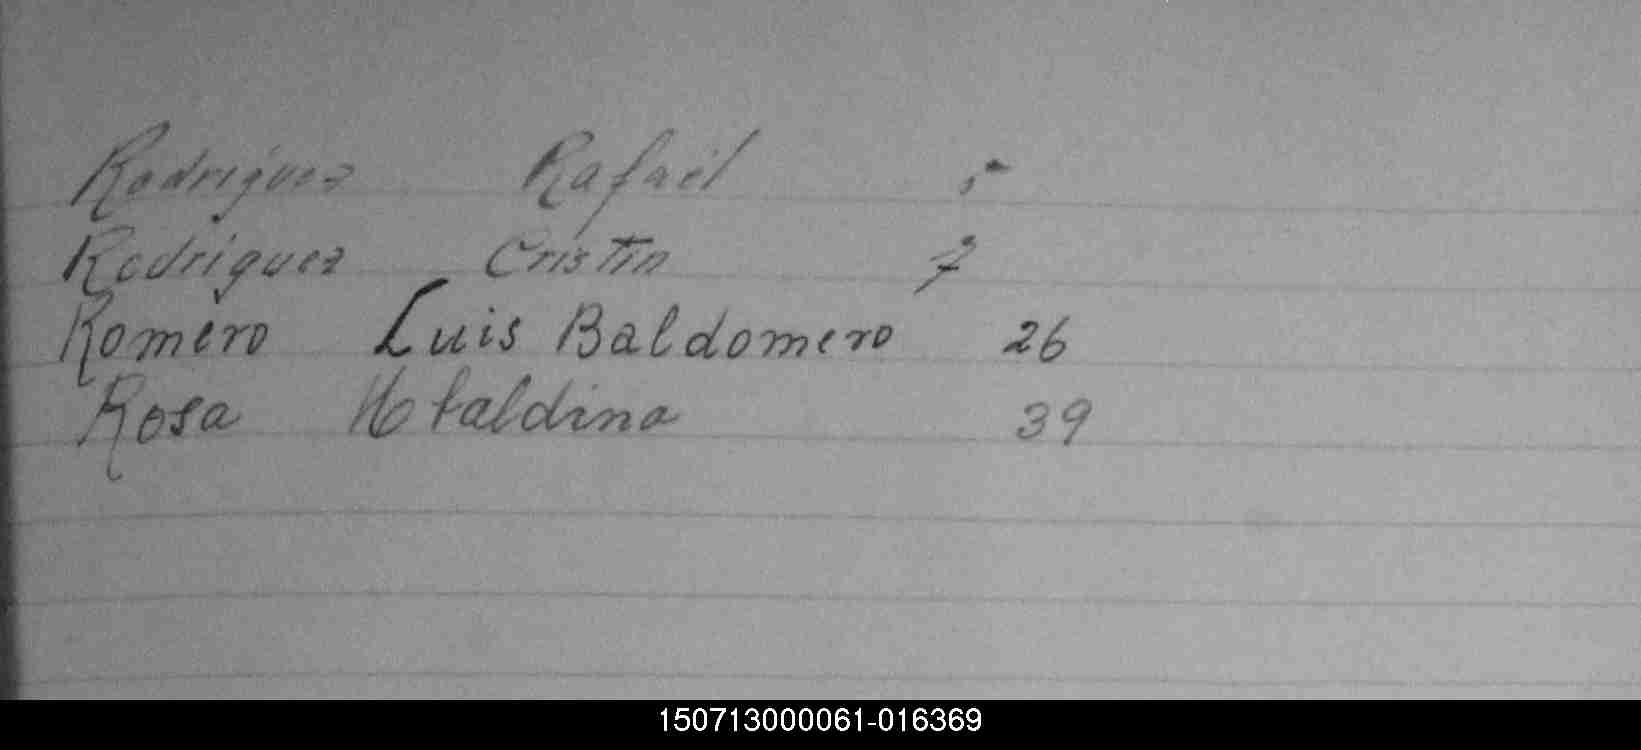 Rodriguez Rafaél 5
Rodriguez Cristin 7
Romero Luis Baldomero 26
Rosa 39
150713000061-016369